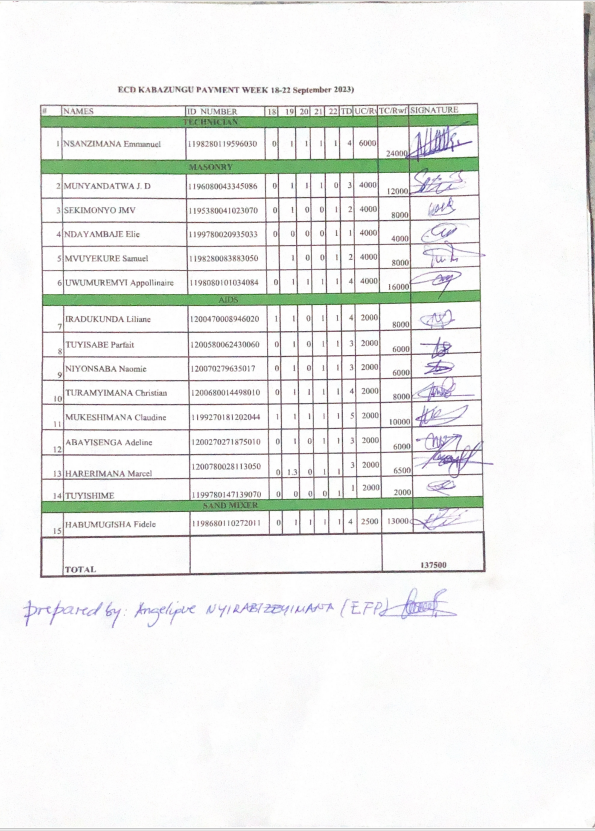 ECD KABAZUNGU PAYMENT WEEK 18-22 September 2023)
# NAMES ID NUMBER 18 19 20 21 22 TD UC/R TC/Rwf SIGNATURE
TECHNICIAN
1 NSANZIMANA Emmanuel 1198280119596030 0 1 1 1 1 4 6000 24000
MASONRY
2 MUNYANDATWA J. D 1196080043345086 0 1 1 1 0 3 4000 12000
3 SEKIMONYO JMV 1195380041023070 0 1 0 0 1 2 4000 8000
4 NDAYAMBAJE Elie 1199780020935033 0 0 0 0 1 1 4000 4000
5 MVUYEKURE Samuel 1198280083883050 1 0 0 1 2 4000 8000
6 UWUMUREMYI Appollinaire 1198080101034084 0 1 1 1 1 4 4000 16000
AIDS
7 IRADUKUNDA Liliane 1200470008946020 1 1 0 1 1 4 2000 8000
8 TUYISABE Parfait 1200580062430060 0 1 0 1 1 3 2000 6000
9 NIYONSABA Naomie 120070279635017 0 1 0 1 1 3 2000 6000
10 TURAMYIMANA Christian 1200680014498010 0 1 1 1 1 4 2000 8000
11 MUKESHIMANA Claudine 1199270181202044 1 1 1 1 1 5 2000 10000
12 ABAYISENGA Adeline 1200270271875010 0 1 0 1 1 3 2000 6000
13 HARERIMANA Marcel 1200780028113050 0 1.3 0 1 1 3 2000 6500
14 TUYISHIME 1199780147139070 0 0 0 0 1 1 2000 2000
SAND MIXER
15 HABUMUGISHA Fidele 1198680110272011 0 1 1 1 1 4 2500 13000
TOTAL 137500
prepared by: Angelique NYIRABIZEYIMANA (EFP)